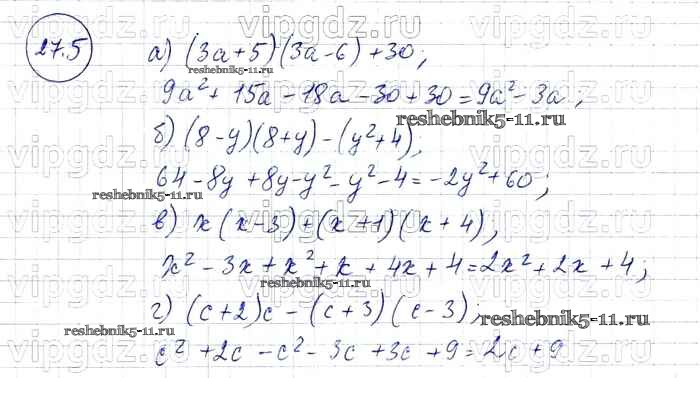 27.5
а) (3a+5)(3a-6)+30;
9a²+15a-18a-30+30=9a²-3a;
б) (8-y)(8+y)-(y²+4);
64-8y+8y-y²-y²-4=-2y²+60;
в) x(x-3)+(x+1)(x+4);
x²-3x+x²+x+4x+4=2x²+2x+4;
г) (c+2)c-(c+3)(c-3);
c²+2c-c²-3c+3c+9=2c+9
vipgdz.ru vipgdz.ru vipgdz.ru
reshebnik5-11.ru
reshebnik5-11.ru
reshebnik5-11.ru
reshebnik5-11.ru
reshebnik5-11.ru